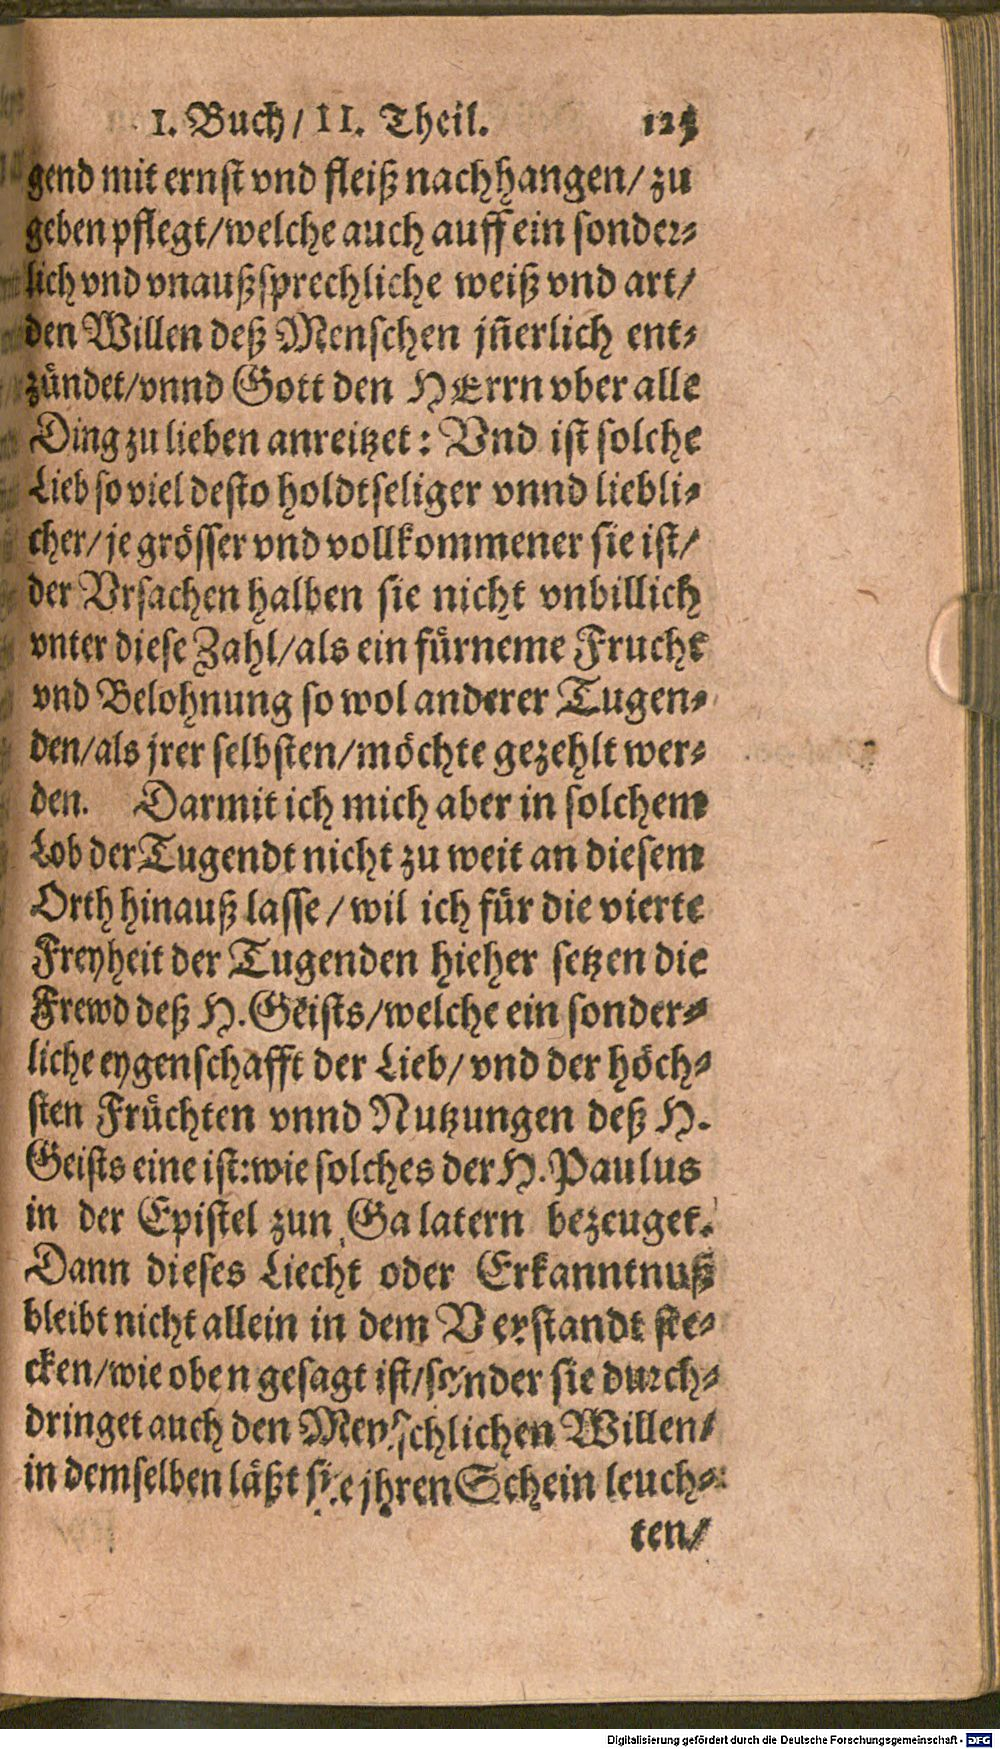 I. Buch/ II. Theil. 125
gend mit ernst vnd fleiß nachhangen/ zu
geben pflegt/welche auch auff ein sonder-
lich vnd vnaußsprechliche weiß vnd art/
den Willen deß Menschen jñerlich ent-
zündet/vnnd Gott den HErrn vber alle
Ding zu lieben anreitzet: Vnd ist solche
Lieb so viel desto holdtseliger vnnd liebli-
cher/ je grösser vnd vollkommener sie ist/
der Vrsachen halben sie nicht vnbillich
vnter diese Zahl/als ein fürneme Frucht
vnd Belohnung so wol anderer Tugen-
den/als jrer selbsten/möchte gezehlt wer-
den. Darmit ich mich aber in solchem
Lob der Tugendt nicht zu weit an diesem
Orth hinauß lasse/ wil ich für die vierte
Freyheit der Tugenden hieher setzen die
Frewd deß H. Geists/welche ein sonder-
liche eygenschafft der Lieb/ vnd der höch-
sten Früchten vnnd Nutzungen deß H.
Geists eine ist: wie solches der H. Paulus
in der Epistel zun Galatern bezeuget.
Dann dieses Liecht oder Erkanntnuß
bleibt nicht allein in dem Verstandt ste-
cken/wie oben gesagt ist/sonder sie durch-
dringet auch den Menschlichen Willen/
in demselben läßt sie jhren Schein leuch-
ten/
Digitalisierung gefördert durch die Deutsche Forschungsgemeinschaft - DFG